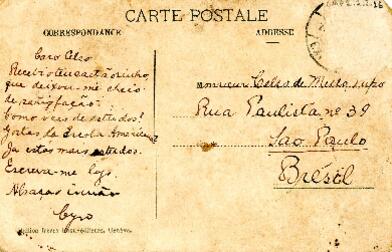 CARTE POSTALE
CORRESPONDANCE
ADRESSE
Caro Celso
Recebi o teu cartãosinho,
que deixou-me cheio
de satisfação.
Como vaes de estudos?
Gostas da Escola Americana
Ja estás mais
Escreve-me logo.
Abraços irmão
Cyro
Monsieur Celso de
Rua Paulista nº 39
Sao Paulo
Brésil